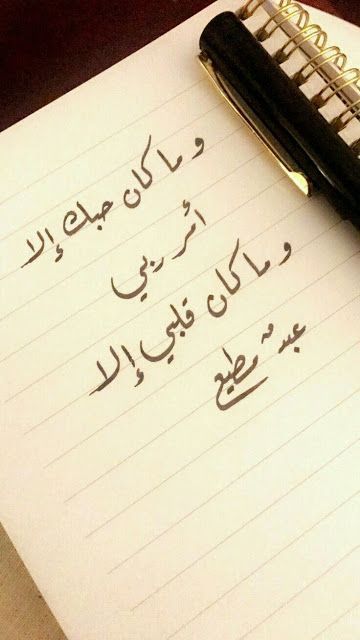 وما كان حبك إلا
أمر ربي
وما كان قلبي إلا
عبدٌ مطيع